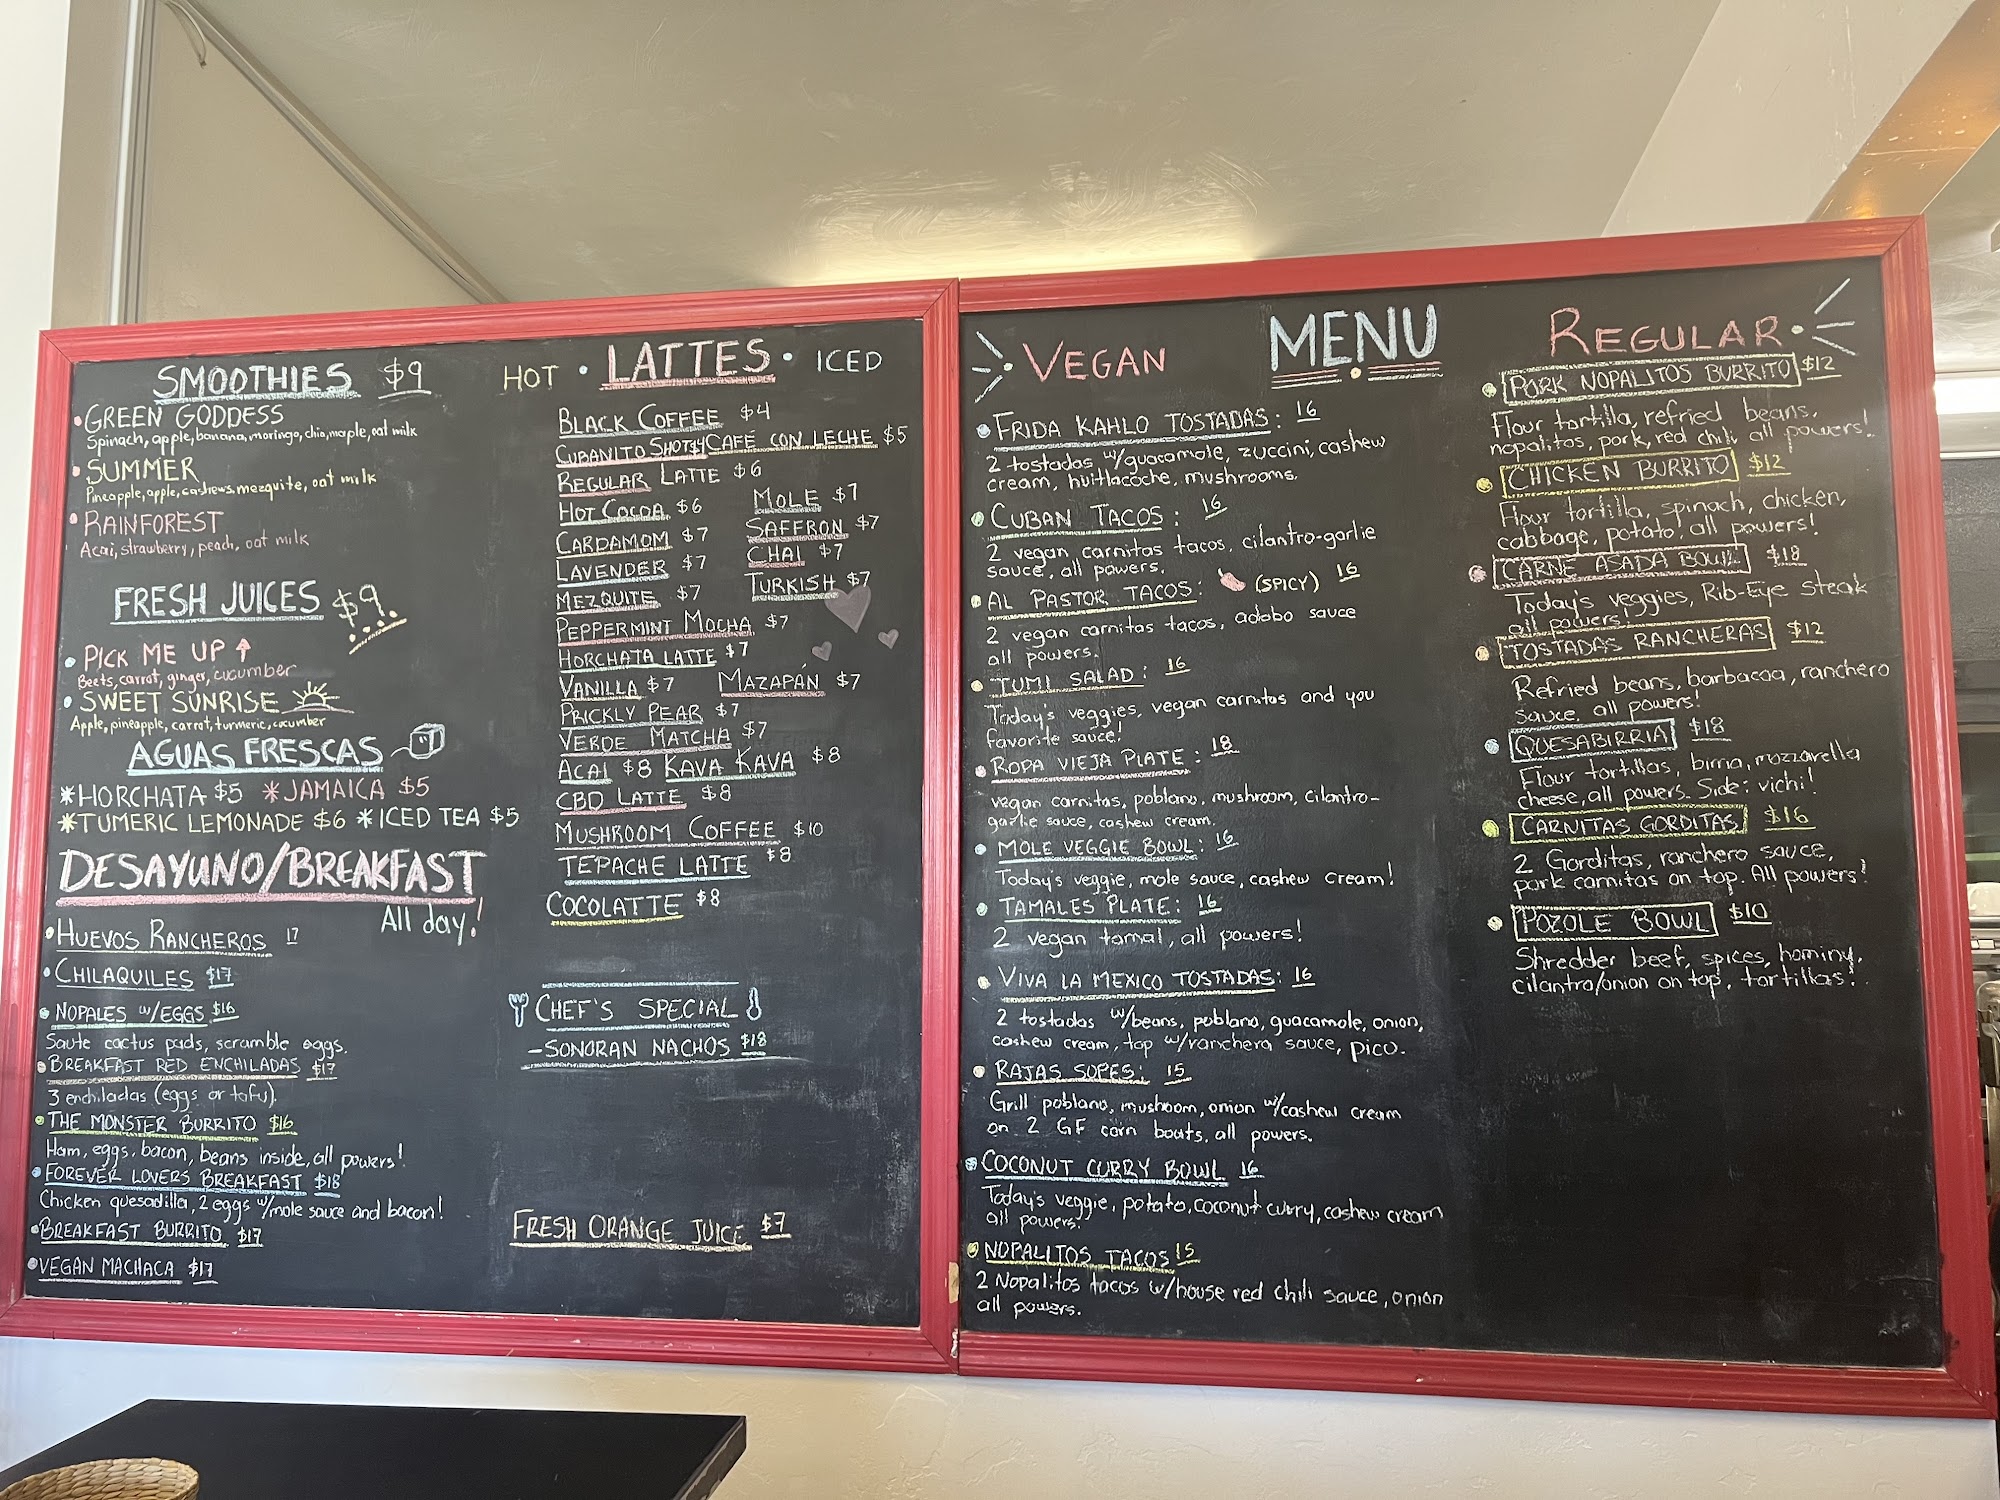 SMOOTHIES $9
GREEN GODDESS
Spinach, apple, banana, moringo, chia, maple, oat milk
SUMMER
Pineapple, apple, cashews, mezquite, oat milk
RAINFOREST
Acai, strawberry, peach, oat milk
FRESH JUICES $9.
PICK ME UP
Beets, carrot, ginger, cucumber
SWEET SUNRISE
Apple, pineapple, carrot, turmeric, cucumber
AGUAS FRESCAS
*HORCHATA $5 *JAMAICA $5
*TUMERIC LEMONADE $6 *ICED TEA $5
DESAYUNO/BREAKFAST
All day!
HUEVOS RANCHEROS 17
CHILAQUILES $17
NOPALES W/EGGS $16
Saute cactus pads, scramble eggs.
BREAKFAST RED ENCHILADAS $17
3 enchiladas (eggs or tofu).
THE MONSTER BURRITO $16
Ham, eggs, bacon, beans inside, all powers!
FOREVER LOVERS BREAKFAST $18
Chicken quesadilla, 2 eggs w/mole sauce and bacon!
BREAKFAST BURRITO $17
VEGAN MACHACA $17
HOT • LATTES • ICED
BLACK COFFEE $4
CUBANITO SHOT $4 CAFÉ CON LECHE $5
REGULAR LATTE $6
HOT COCOA $6
MOLE $7
CARDAMOM $7
SAFFRON $7
LAVENDER $7
CHAI $7
MEZQUITE $7
TURKISH $7
PEPPERMINT MOCHA $7
HORCHATA LATTE $7
VANILLA $7
MAZAPÁN $7
PRICKLY PEAR $7
VERDE MATCHA $7
ACAI $8 KAVA KAVA $8
CBD LATTE $8
MUSHROOM COFFEE $10
TEPACHE LATTE $8
COCOLATTE $8
CHEF'S SPECIAL
-SONORAN NACHOS $18
FRESH ORANGE JUICE $7
VEGAN MENU REGULAR
FRIDA KAHLO TOSTADAS: 16
2 tostadas w/guacamole, zuccini, cashew
cream, huitlacoche, mushrooms.
CUBAN TACOS: 16
2 vegan carnitas tacos, cilantro-garlic
sauce, all powers.
AL PASTOR TACOS: (SPICY) 16
2 vegan carnitas tacos, adobo sauce
all powers.
TUMI SALAD: 16
Today's veggies, vegan carnitas and you
favorite sauce!
ROPA VIEJA PLATE: 18
vegan carnitas, poblano, mushroom, cilantro-
garlic sauce, cashew cream.
MOLE VEGGIE BOWL: 16
Today's veggie, mole sauce, cashew cream!
TAMALES PLATE: 16
2 vegan tamal, all powers!
VIVA LA MEXICO TOSTADAS: 16
2 tostadas w/beans, poblano, guacamole, onion,
cashew cream, top w/ranchera sauce, pico.
RAJAS SOPES: 15
Grill poblano, mushoom, onion w/cashew cream
on 2 GF corn boats, all powers.
COCONUT CURRY BOWL 16
Today's veggie, potato, coconut curry, cashew cream
all powers.
NOPALITOS TACOS 15
2 Nopalitos tacos w/house red chili sauce, onion
all powers.
PORK NOPALITOS BURRITO $12
Flour tortilla, refried beans,
nopalitos, pork, red chili all powers!
CHICKEN BURRITO $12
Flour tortilla, spinach, chicken,
cabbage, potato, all powers!
CARNE ASADA BOWL $18
Today's veggies, Rib-Eye steak
all powers!
TOSTADAS RANCHERAS $12
Refried beans, barbacoa, ranchero
sauce, all powers!
QUESABIRRIA $18
Flour tortillas, birria, mozzarella
cheese, all powers. Side: vichi!
CARNITAS GORDITAS $16
2 Gorditas, ranchero sauce,
pork carnitas on top. All powers!
POZOLE BOWL $10
Shredder beef, spices, hominy,
cilantro/onion on top, tortillas!